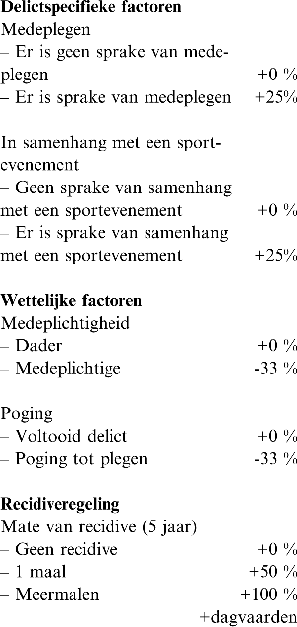 Delictspecifieke factoren
Medeplegen
– Er is geen sprake van mede-
plegen +0 %
– Er is sprake van medeplegen +25%
In samenhang met een sport-
evenement
– Geen sprake van samenhang
met een sportevenement +0 %
– Er is sprake van samenhang
met een sportevenement +25%
Wettelijke factoren
Medeplichtigheid
– Dader +0 %
– Medeplichtige -33 %
Poging
– Voltooid delict +0 %
– Poging tot plegen -33 %
Recidiveregeling
Mate van recidive (5 jaar)
– Geen recidive +0 %
– 1 maal +50 %
– Meermalen +100 %
+dagvaarden